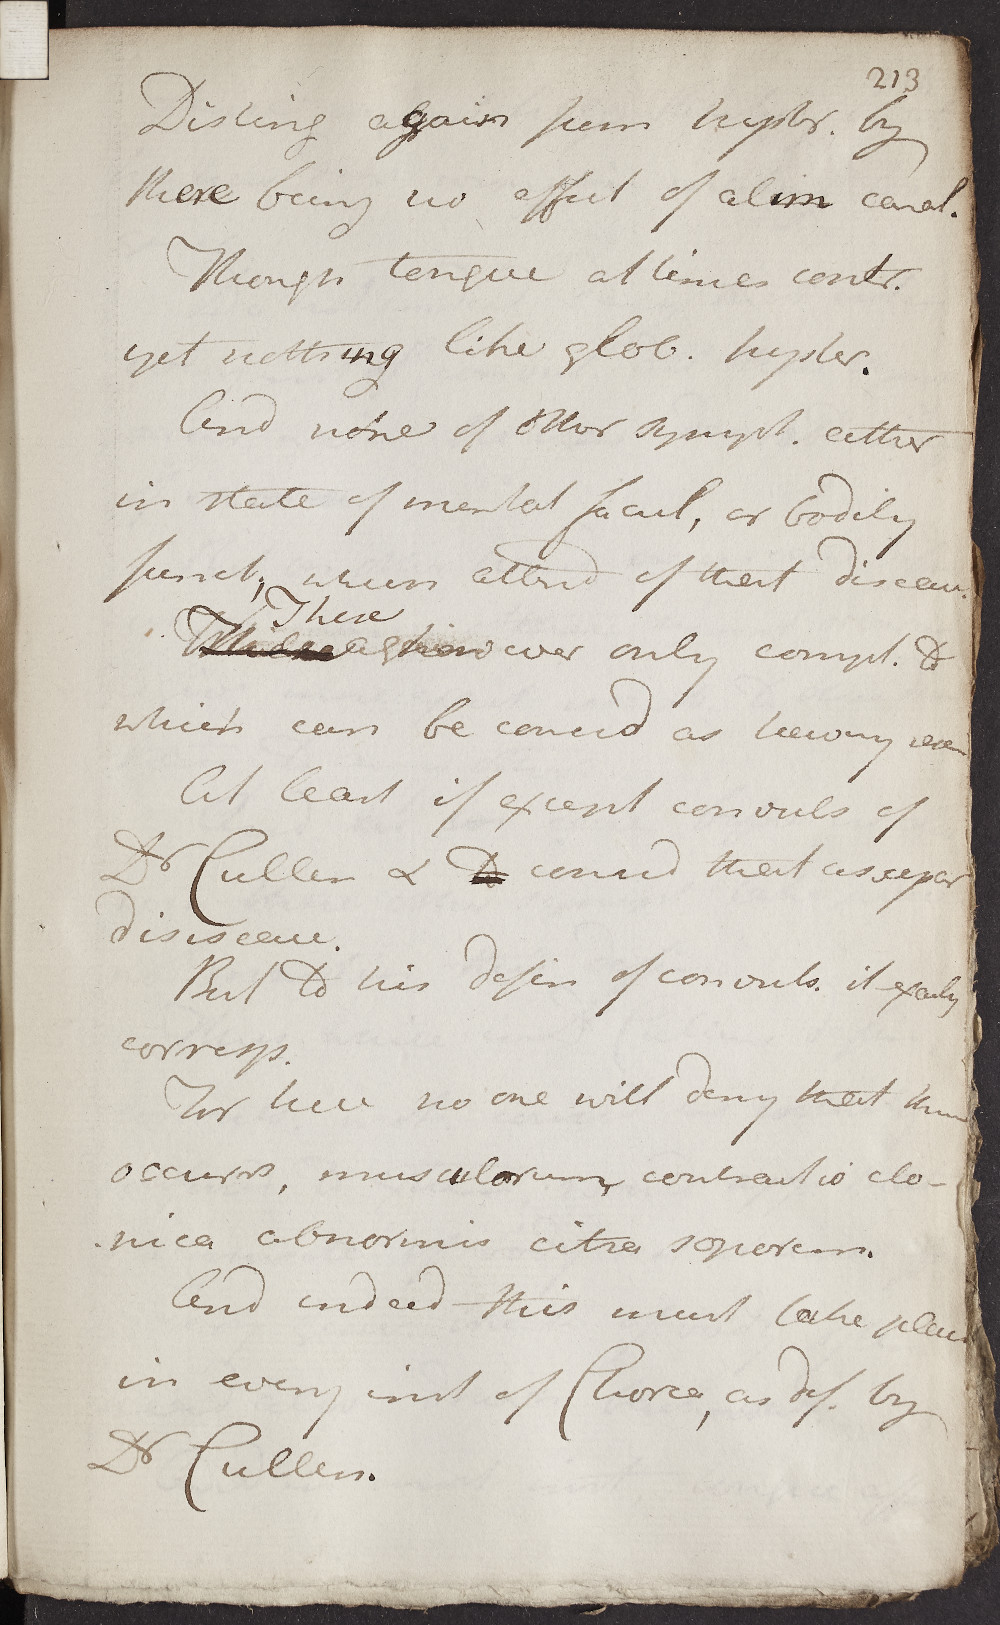 213
Disting again from hyster. by
there being no affect of alim canal.
Though tongue at times contr.
yet nothing like glob. hyster.
And none of other sympt. either
in state of mental facul, or bodily
funct, when attend of that disease.
These
however only compl. to
which can be consid as having
At least if except convuls of
Dr Cullen & consid that as separ
disisease.
But to his defin of convuls. it exactly
corresp.
For here no one will deny that there
occurrs, musculorum contractio clo-
nica abnormis citra soporem.
And indeed this must take place
in every inst of Chorea, as def. by
Dr Cullen.